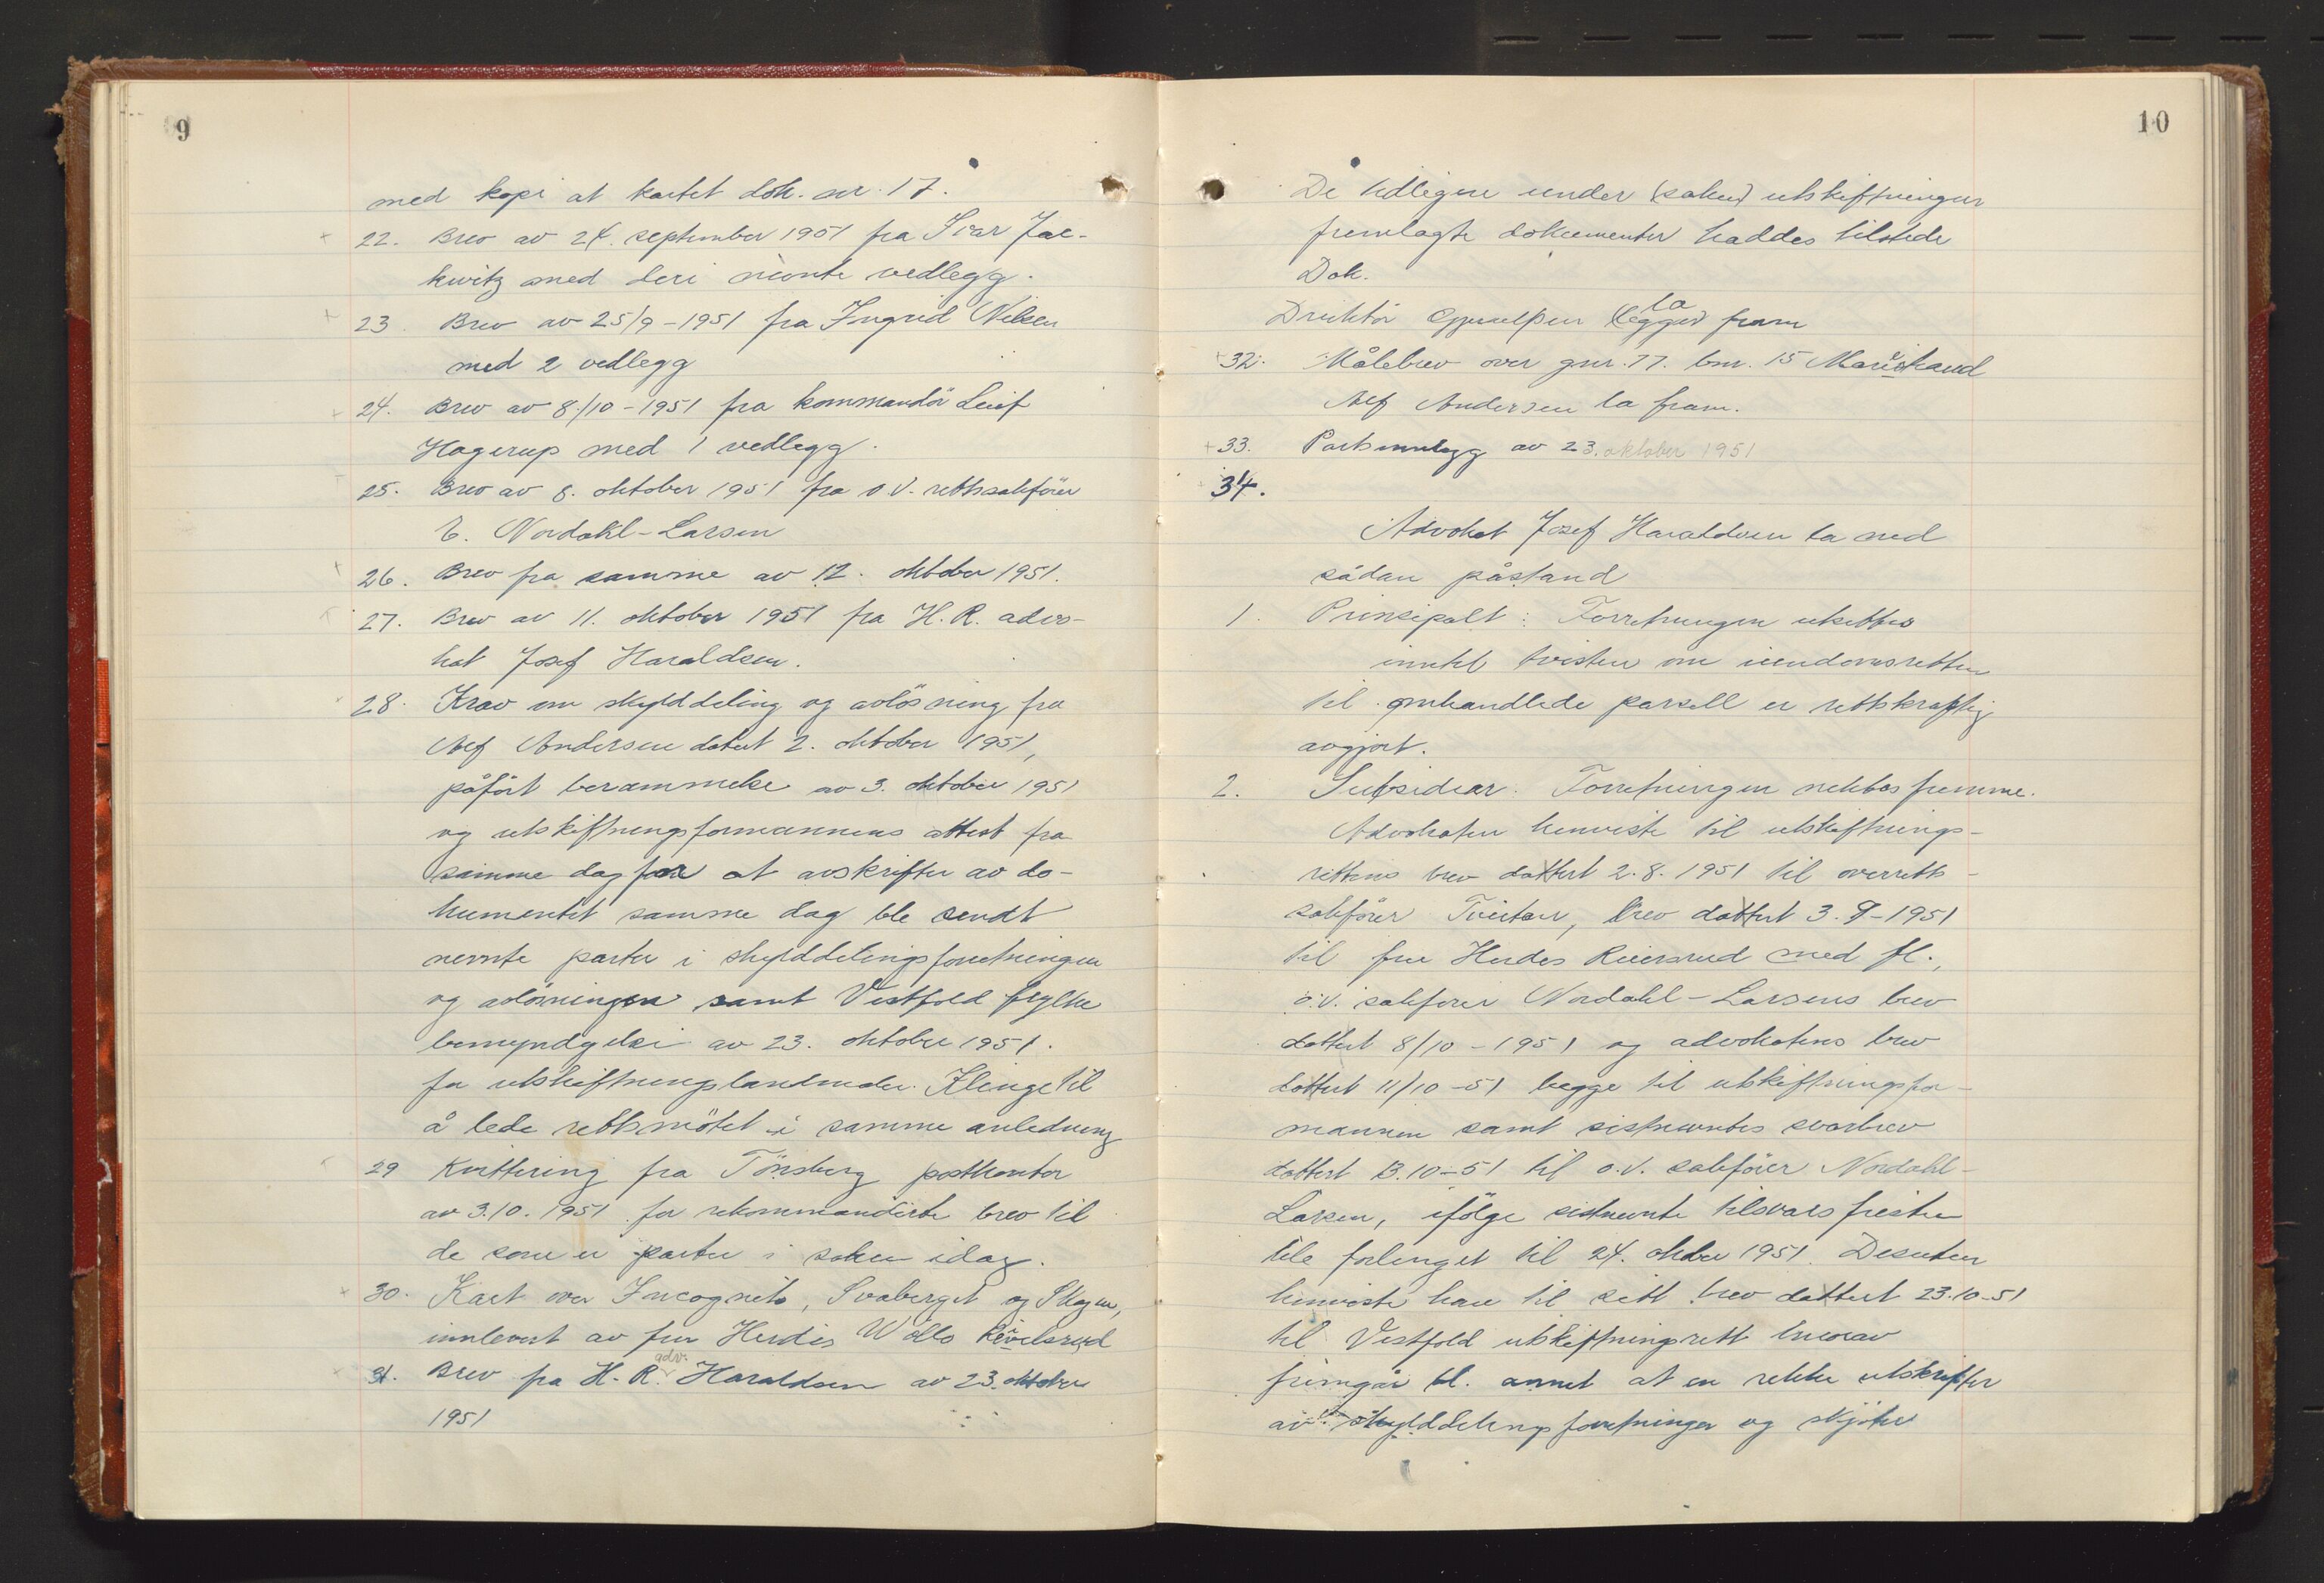 9
med kopi at kartet dok. nr. 17.
22. Brev av 24. september 1951 fra Ivar Jac-
kwitz med deri nevnte vedlegg.
23. Brev av 25/9-1951 fra Ingrid Nilsen
med 2 vedlegg
24. Brev av 8/10-1951 fra kommandör Leif
Hagerup med 1 vedlegg.
25. Brev av 8. oktober 1951 fra o.r. rettssakförer
E. Nordahl-Larsen
26. Brev fra samme av 12. oktober 1951.
27. Brev av 11. oktober 1951 fra H.R. advo-
kat Josef Haraldsen.
28. Krav om skylddeling og avlösning fra
Alf Andersen datert 2. oktober 1951,
påfört berammelse av 3. oktober 1951
og utskiftningsformannens attest fra
samme dag for at avskrifter av do-
kumentet samme dag ble sendt
nevnte parter i skylddelingsforretningen
og avlösningen samt Vestfold fylke
bemyndigelse av 23. oktober 1951.
for utskiftningslandmåler Klinge til
å lede rettsmötet i samme anledning
29 Kvittering fra Tönsberg postkontor
av 3.10.1951 for rekommanderte brev til
de som er parter i saken idag.
30. Kart over Incognito, Svaberget og Skogen,
innlevert av fru Herdis Wöllo
31. Brev fra H.R. adv. Haraldsen av 23. oktober
1951
10
De tidligere under (saken) utskiftningen
fremlagte dokumenter haddes tilstede
Dok.
Direktör (legger) la fram
32. Målebrev over gnr. 77. bnr. 15
Alf Andersen la fram.
33. Partsinnlegg av 23. oktober 1951
34.
Advokat Josef Haraldsen la ned
sådan påstand
1. Prinsipalt: Forretningen utsettes
inntil tvisten om iendomsretten
til omhandlede parsell er rettskraftig
avgjort.
2. Subsidiær: Forretningen nektes fremme.
Advokaten henviste til utskiftnings-
rettens brev dattert 2.8.1951 til overretts-
sakförer Tveitan, brev dattert 3.9-1951
til fru Herdes Reiersrud med fl.,
o.r. sakförer Nordahl-Larsens brev
dattert 8/10-1951 og advokatens brev
dattert 11/10-51 begge til utskiftningsfor-
mannen samt sistnevntes svarbrev
dattert 13.10-51 til o.r. sakförer Nordahl-
Larsen, ifölge sistnevnte tilsvarsfristen
ble forlenget til 24. oktober 1951. Desuten
henviste han til sitt brev dattert 23.10-51
til Vestfold utskiftningsrett hvorav
fremgår bl. annet at en rekke utskrifter
av skylddelingsforretninger og skjöter